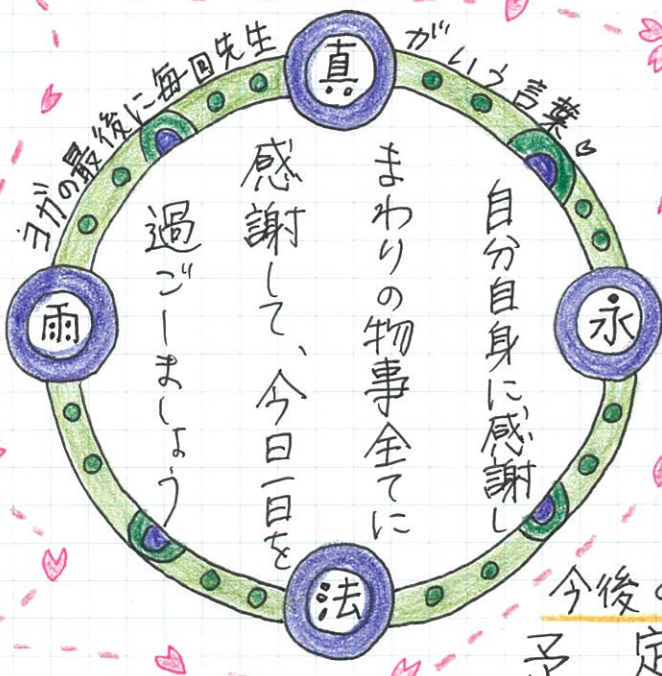 ヨガの最後に毎回先生がいう言葉
真
永
法
雨
自分自身に感謝し
まわりの物事全てに
感謝して、今日一日を
過ごしましょう
今後
予定